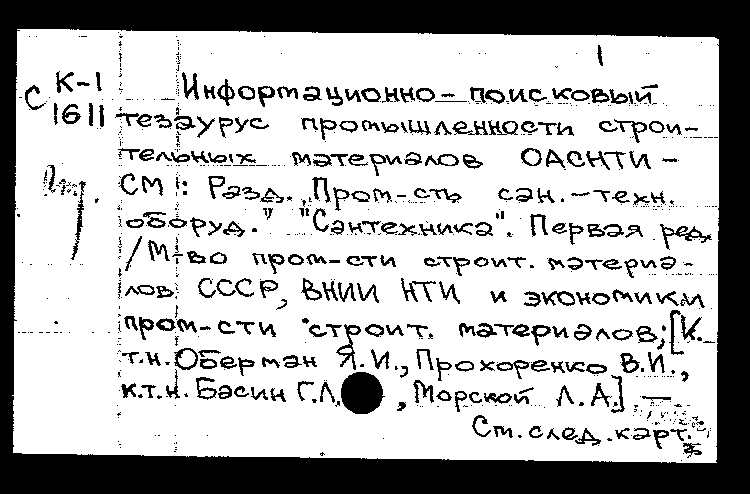 1
С К-1
1611
Информационно-поисковый
тезаурус промышленности строи-
тельных материалов ОАСНТИ-
СМ: Разд. "Пром-сть сан.-техн.
оборуд." "Сантехника". Первая ред.
/М-во пром-сти строит. материа-
лов СССР, ВНИИ НТИ и экономики
пром-сти строит. материалов; [К.
т.н. Оберман Я.И., Прохоренко В.И.,
к.т.н. Басин Г.Л., Морской Л.А.] —
См. след. карт.